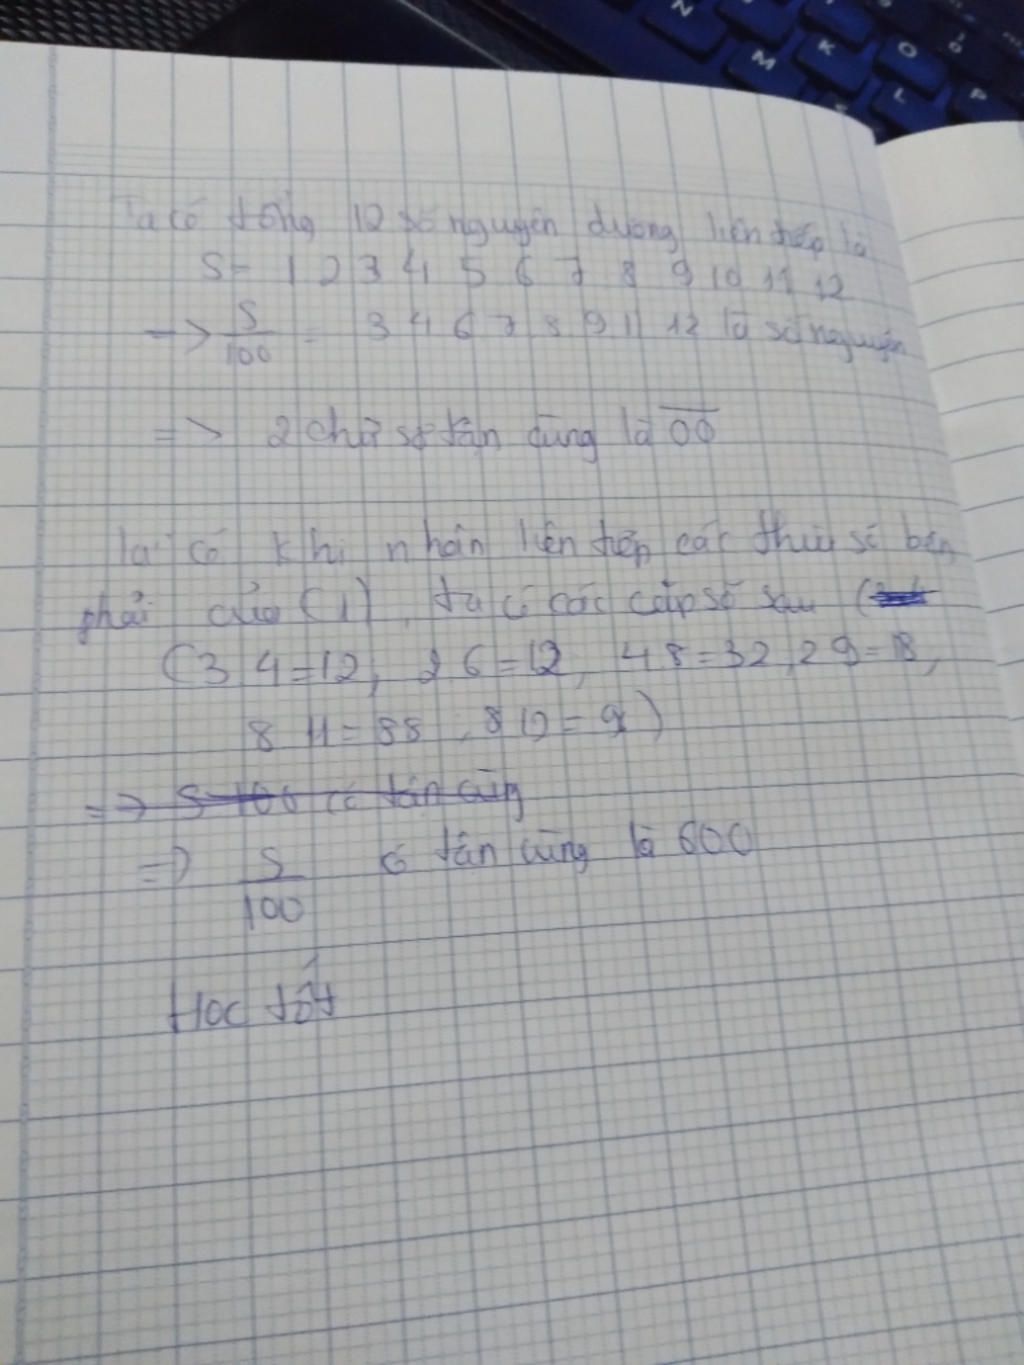 Ta có tổng 12 số nguyên dương liên tiếp là
S = 1 2 3 4 5 6 7 8 9 10 11 12
-> S/100 = 3 4 6 7 8 9 11 12 là số nguyên
=> 2 chữ số tận cùng là 00
Lại có khi nhân liên tiếp các thừa số bên
phải của (1), ta có các cặp số sau
(3 4=12, 2 6=12, 4 8=32, 2 9=18,
8 11=88, 8 12=
=> S 100 có tận cùng
=> S/100 có tận cùng là 600
Học tốt
N M K O L P